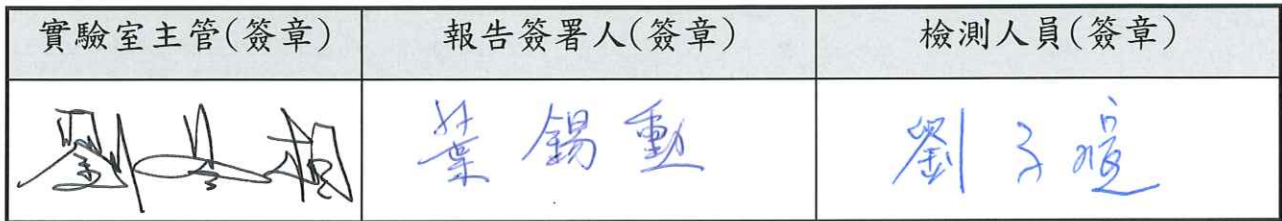 實驗室主管(簽章) 報告簽署人(簽章) 檢測人員(簽章)
葉錫勳 劉子